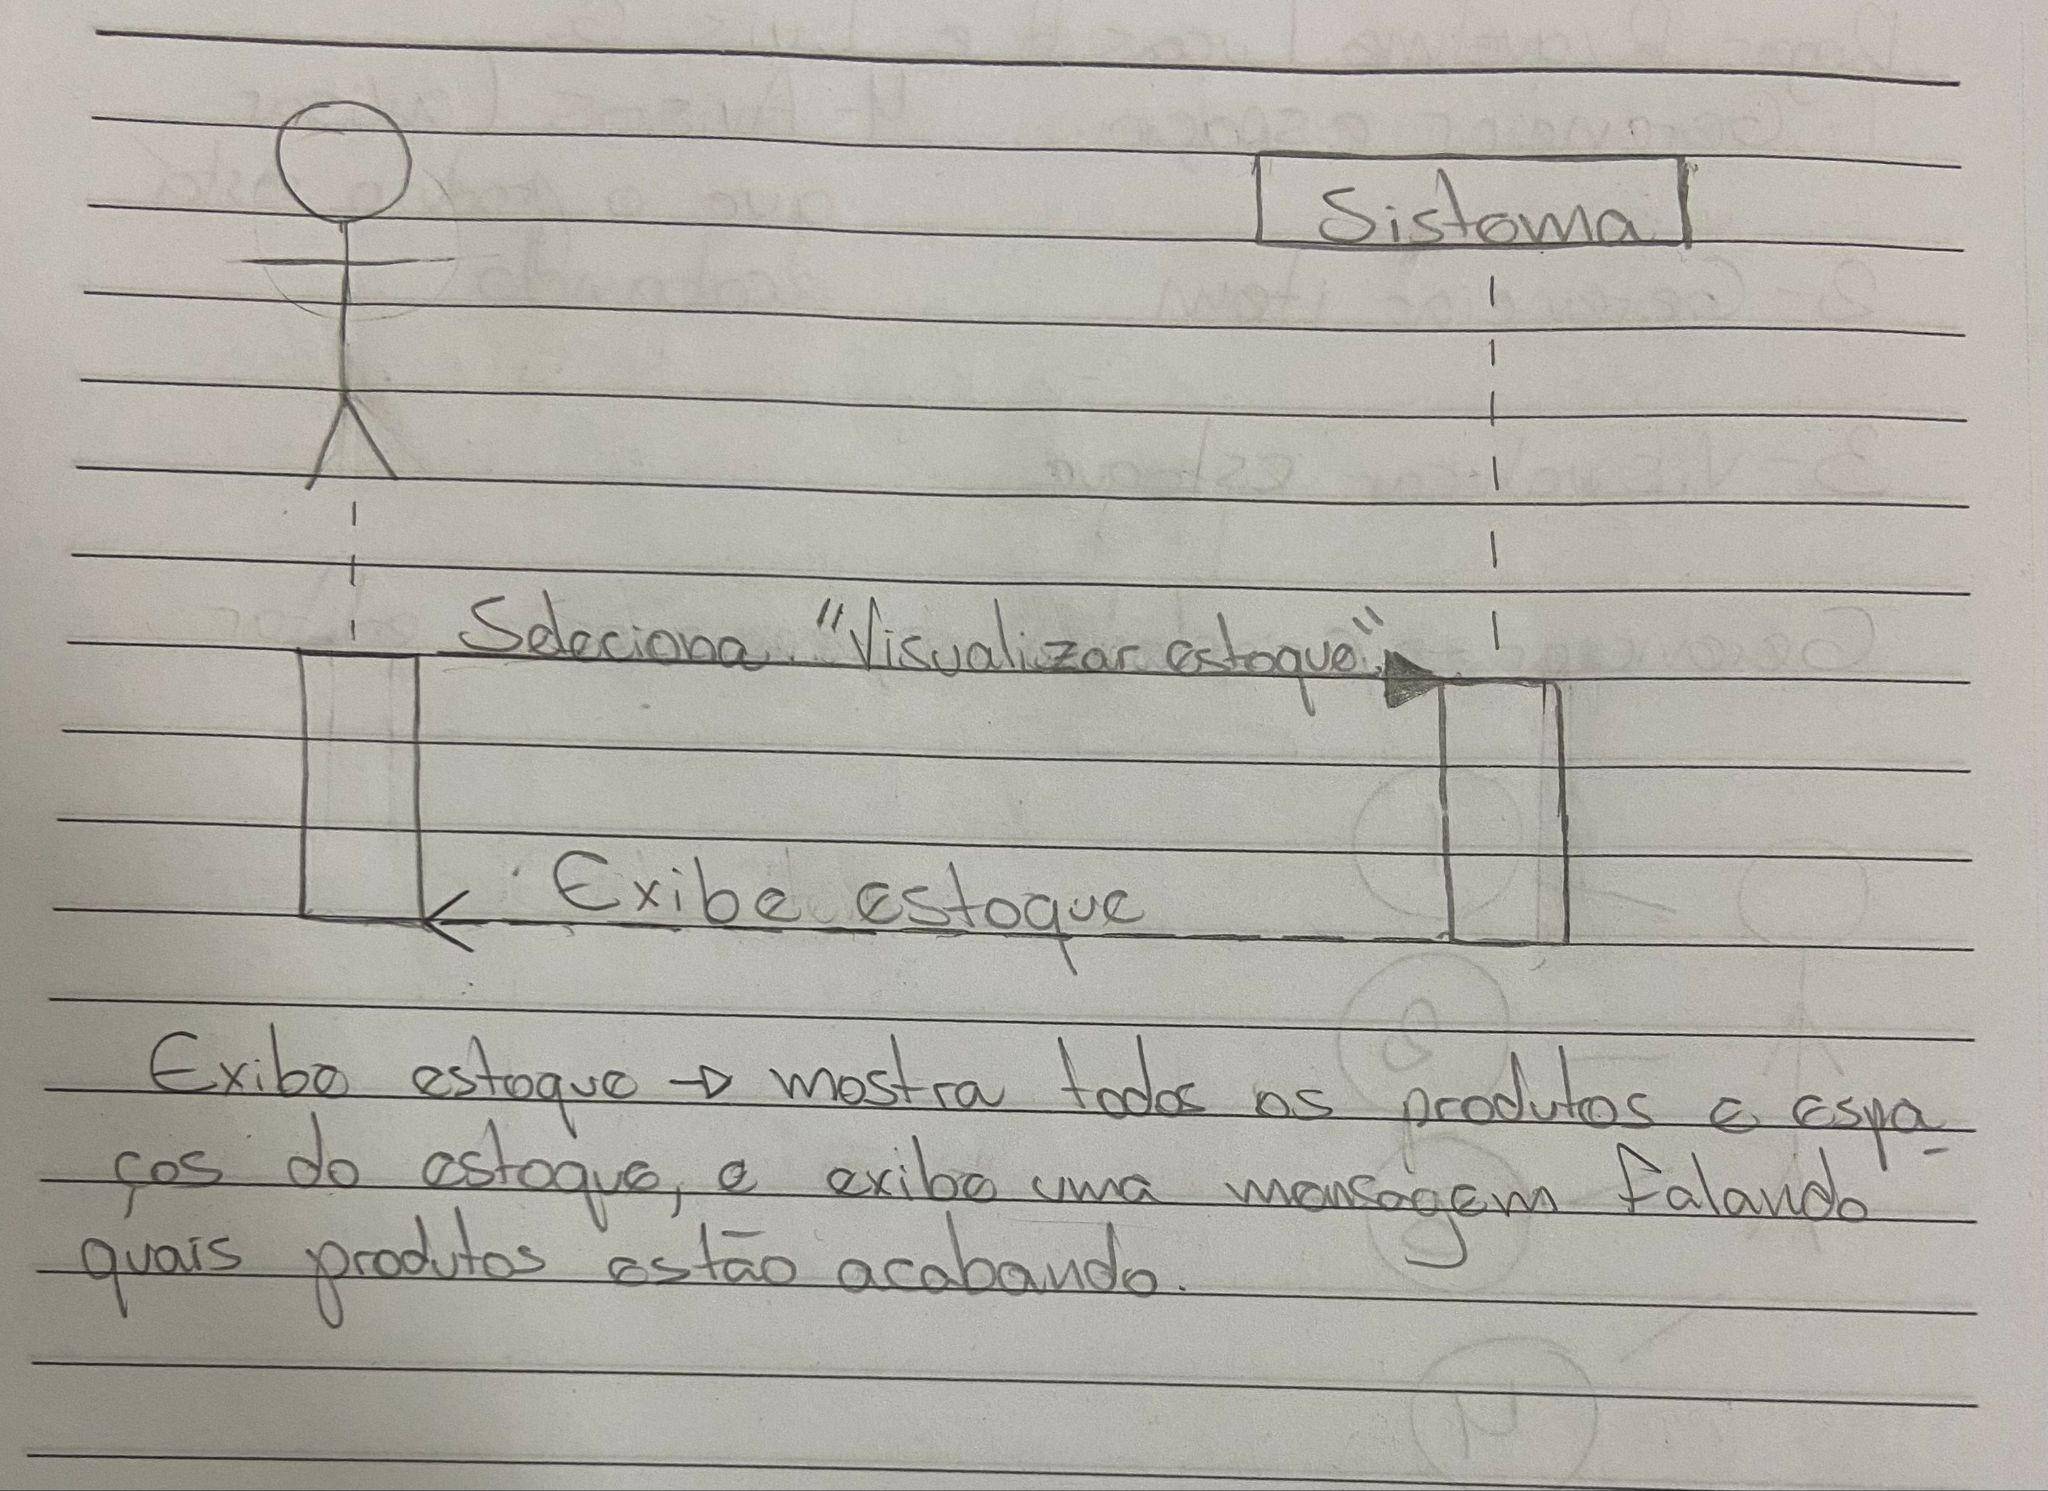 Sistema
Seleciona "Visualizar estoque"
Exibe estoque
Exibe estoque → mostra todos os produtos e espa-
ços do estoque, e exibe uma mensagem falando
quais produtos estão acabando.